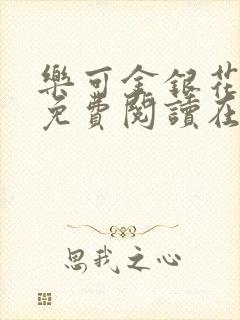 樂可金銀花
免費閱讀在
思我之心